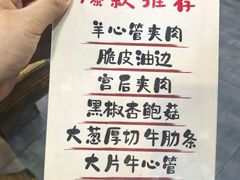 爆款推荐
羊心管夹肉
脆皮油边
宫后夹肉
黑椒杏鲍菇
大葱厚切牛肋条
大片牛心管